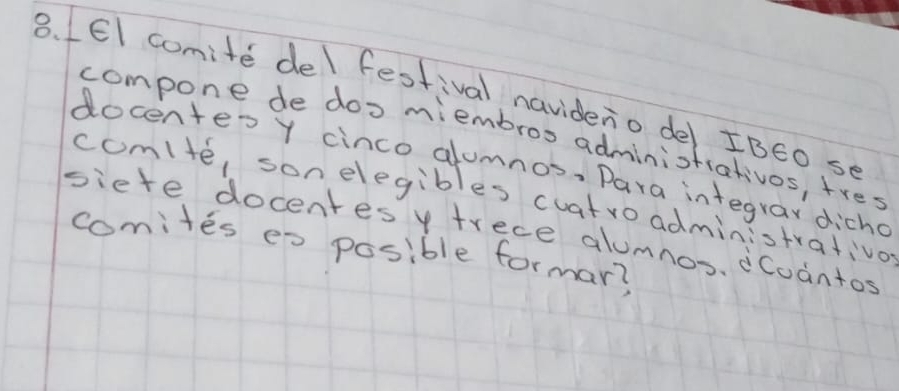 8. El comité del festival navideño del IBEO se
compone de dos miembros administrativos, tres
docentes y cinco alumnos. Para integrar dicho
comité, son elegibles cuatro administrativos
siete docentes y trece alumnos. ¿Cuántos
comités es posible formar?